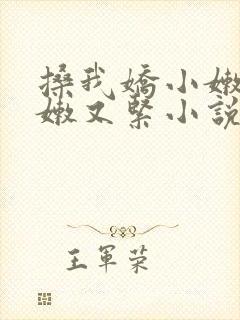 搡我嬌小嫩
嫩又緊小說
王軍荣